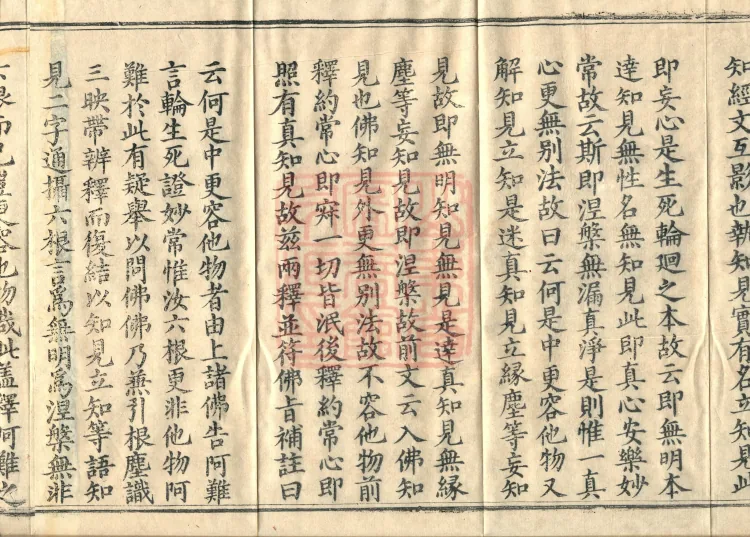 知經文互影也執知見實有名立知見此
即妄心是生死輪迴之本故云即無明本
達知見無性名無知見此即真心安樂妙
常故云斯即涅槃無漏真淨是則惟一真
心更無別法故曰云何是中更容他物又
解知見立知是迷真知見立緣塵等妄知
見故即無明知見無見是達真知見無緣
塵等妄知見故即涅槃故前文云入佛知
見也佛知見外更無別法故不容他物前
釋約常心即寂一切皆泯後釋約常心即
照有真知見故茲兩釋並符佛旨補註曰
云何是中更容他物者由上諸佛告阿難
言輪生死證妙常惟汝六根更非他物阿
難於此有疑舉以問佛佛乃兼引根塵識
三映帶辨釋而復結以知見立知等語知
見二字通攝六根言為無明為涅槃無非
六根而已豈更容他物哉此蓋釋阿難之